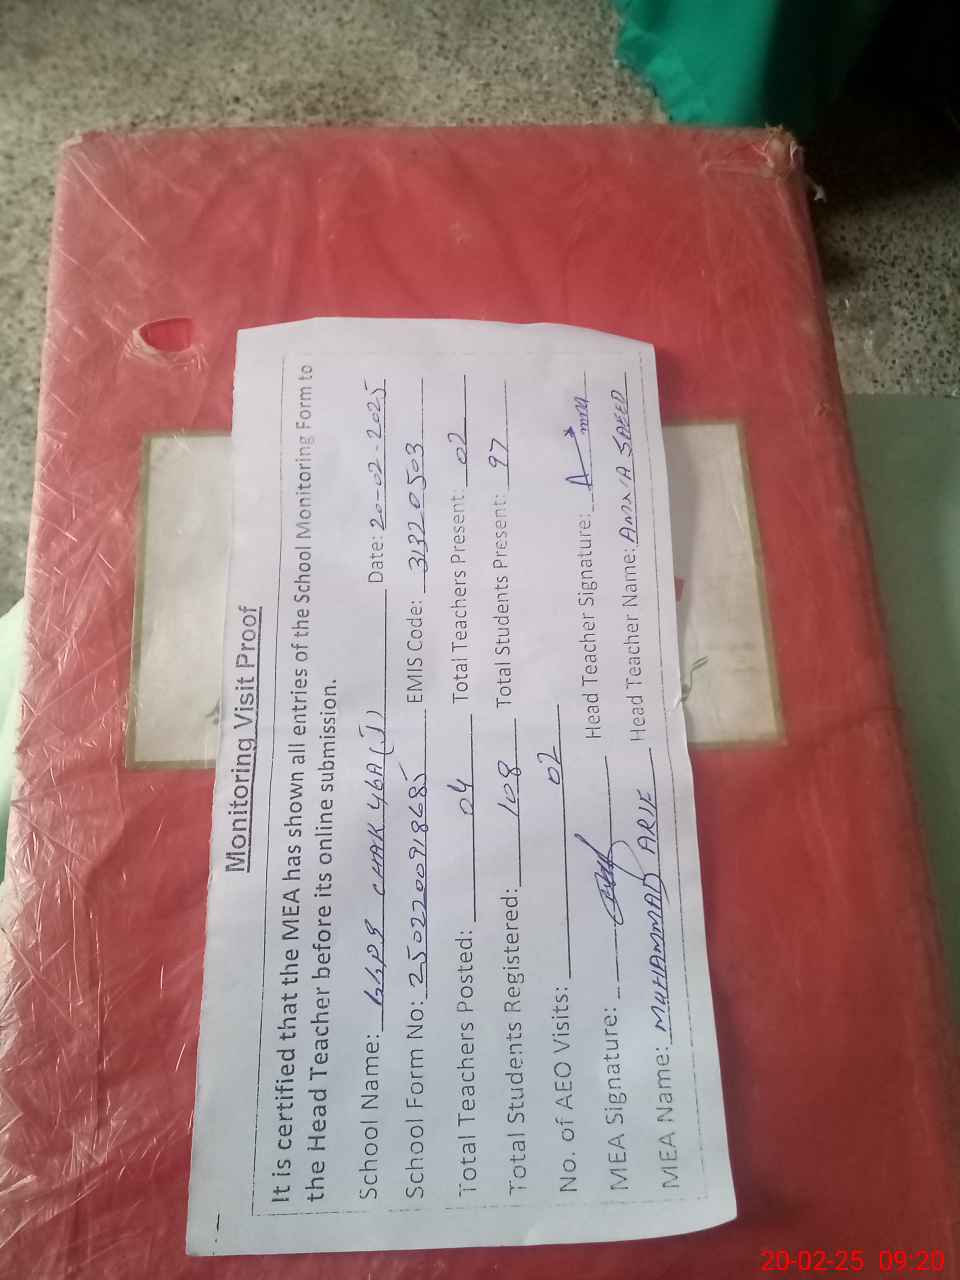 Monitoring Visit Proof
It is certified that the MEA has shown all entries of the School Monitoring Form to
the Head Teacher before its online submission.
School Name: GGPS CHAK 46A (J) Date: 20-02-2025
School Form No: 2502200918685 EMIS Code: 31320503
Total Teachers Posted: 04 Total Teachers Present: 02
Total Students Registered: 108 Total Students Present: 97
No. of AEO Visits: 02
MEA Signature: Head Teacher Signature:
MEA Name: MUHAMMAD ARIF Head Teacher Name: AMNA SAEED
20-02-25 09:20